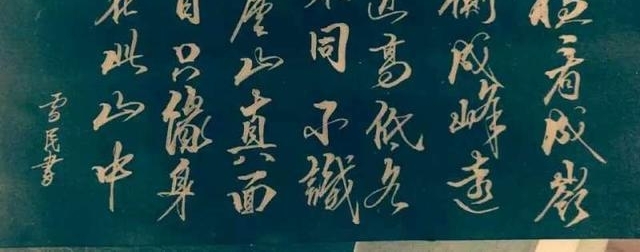 橫看成嶺
側成峰遠
近高低各
不同不識
廬山真面
目只緣身
在此山中
雪民書